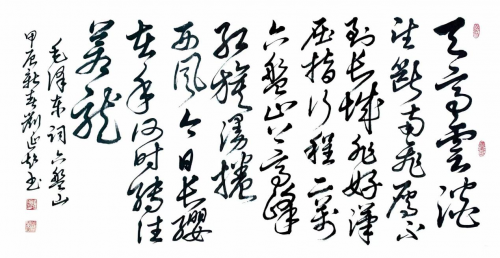 天高雲淡
望斷南飛雁不
到長城非好漢
屈指行程二萬
六盤山上高峰
紅旗漫捲
西風今日長纓
在手何時縛住
蒼龍
毛澤東詞六盤山
甲辰新春劉延书